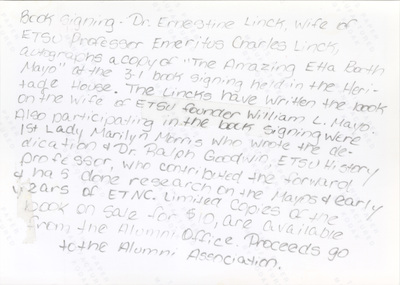 Book signing - Dr. Ernestine Linck, wife of
ETSU Professor Emeritus Charles Linck,
autographs a copy of "The Amazing Etta Booth
Mayo" at the 3-1 book signing held in the Heri-
tage House. The Lincks have written the book
on the wife of ETSU founder William L. Mayo.
Also participating in the book signing were
1st Lady Marilyn Morris who wrote the de-
dication & Dr. Ralph Goodwin, ETSU History
professor, who contributed the forward
& has done research on the Mayos & early
years of ETNC. Limited copies of the
book on sale for $10, are available
from the Alumni Office. Proceeds go
to the Alumni Association.